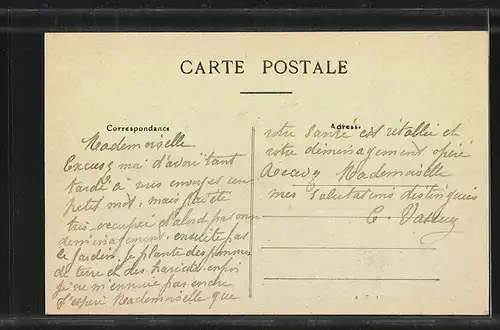 CARTE POSTALE
Correspondance
Adresse
Mademoiselle
Excusez moi d'avoir tant
tardé à vous envoyer un
petit mot, mais j'ai été
très occupée d'abord par mon
déménagement, ensuite par
le jardin. Je plante des pommes
de terre et des haricots enfin
je ne m'ennuie pas encore
J'espère Mademoiselle que
votre santé est rétablie et
votre déménagement opéré
Recevez Mademoiselle
mes salutations distinguées